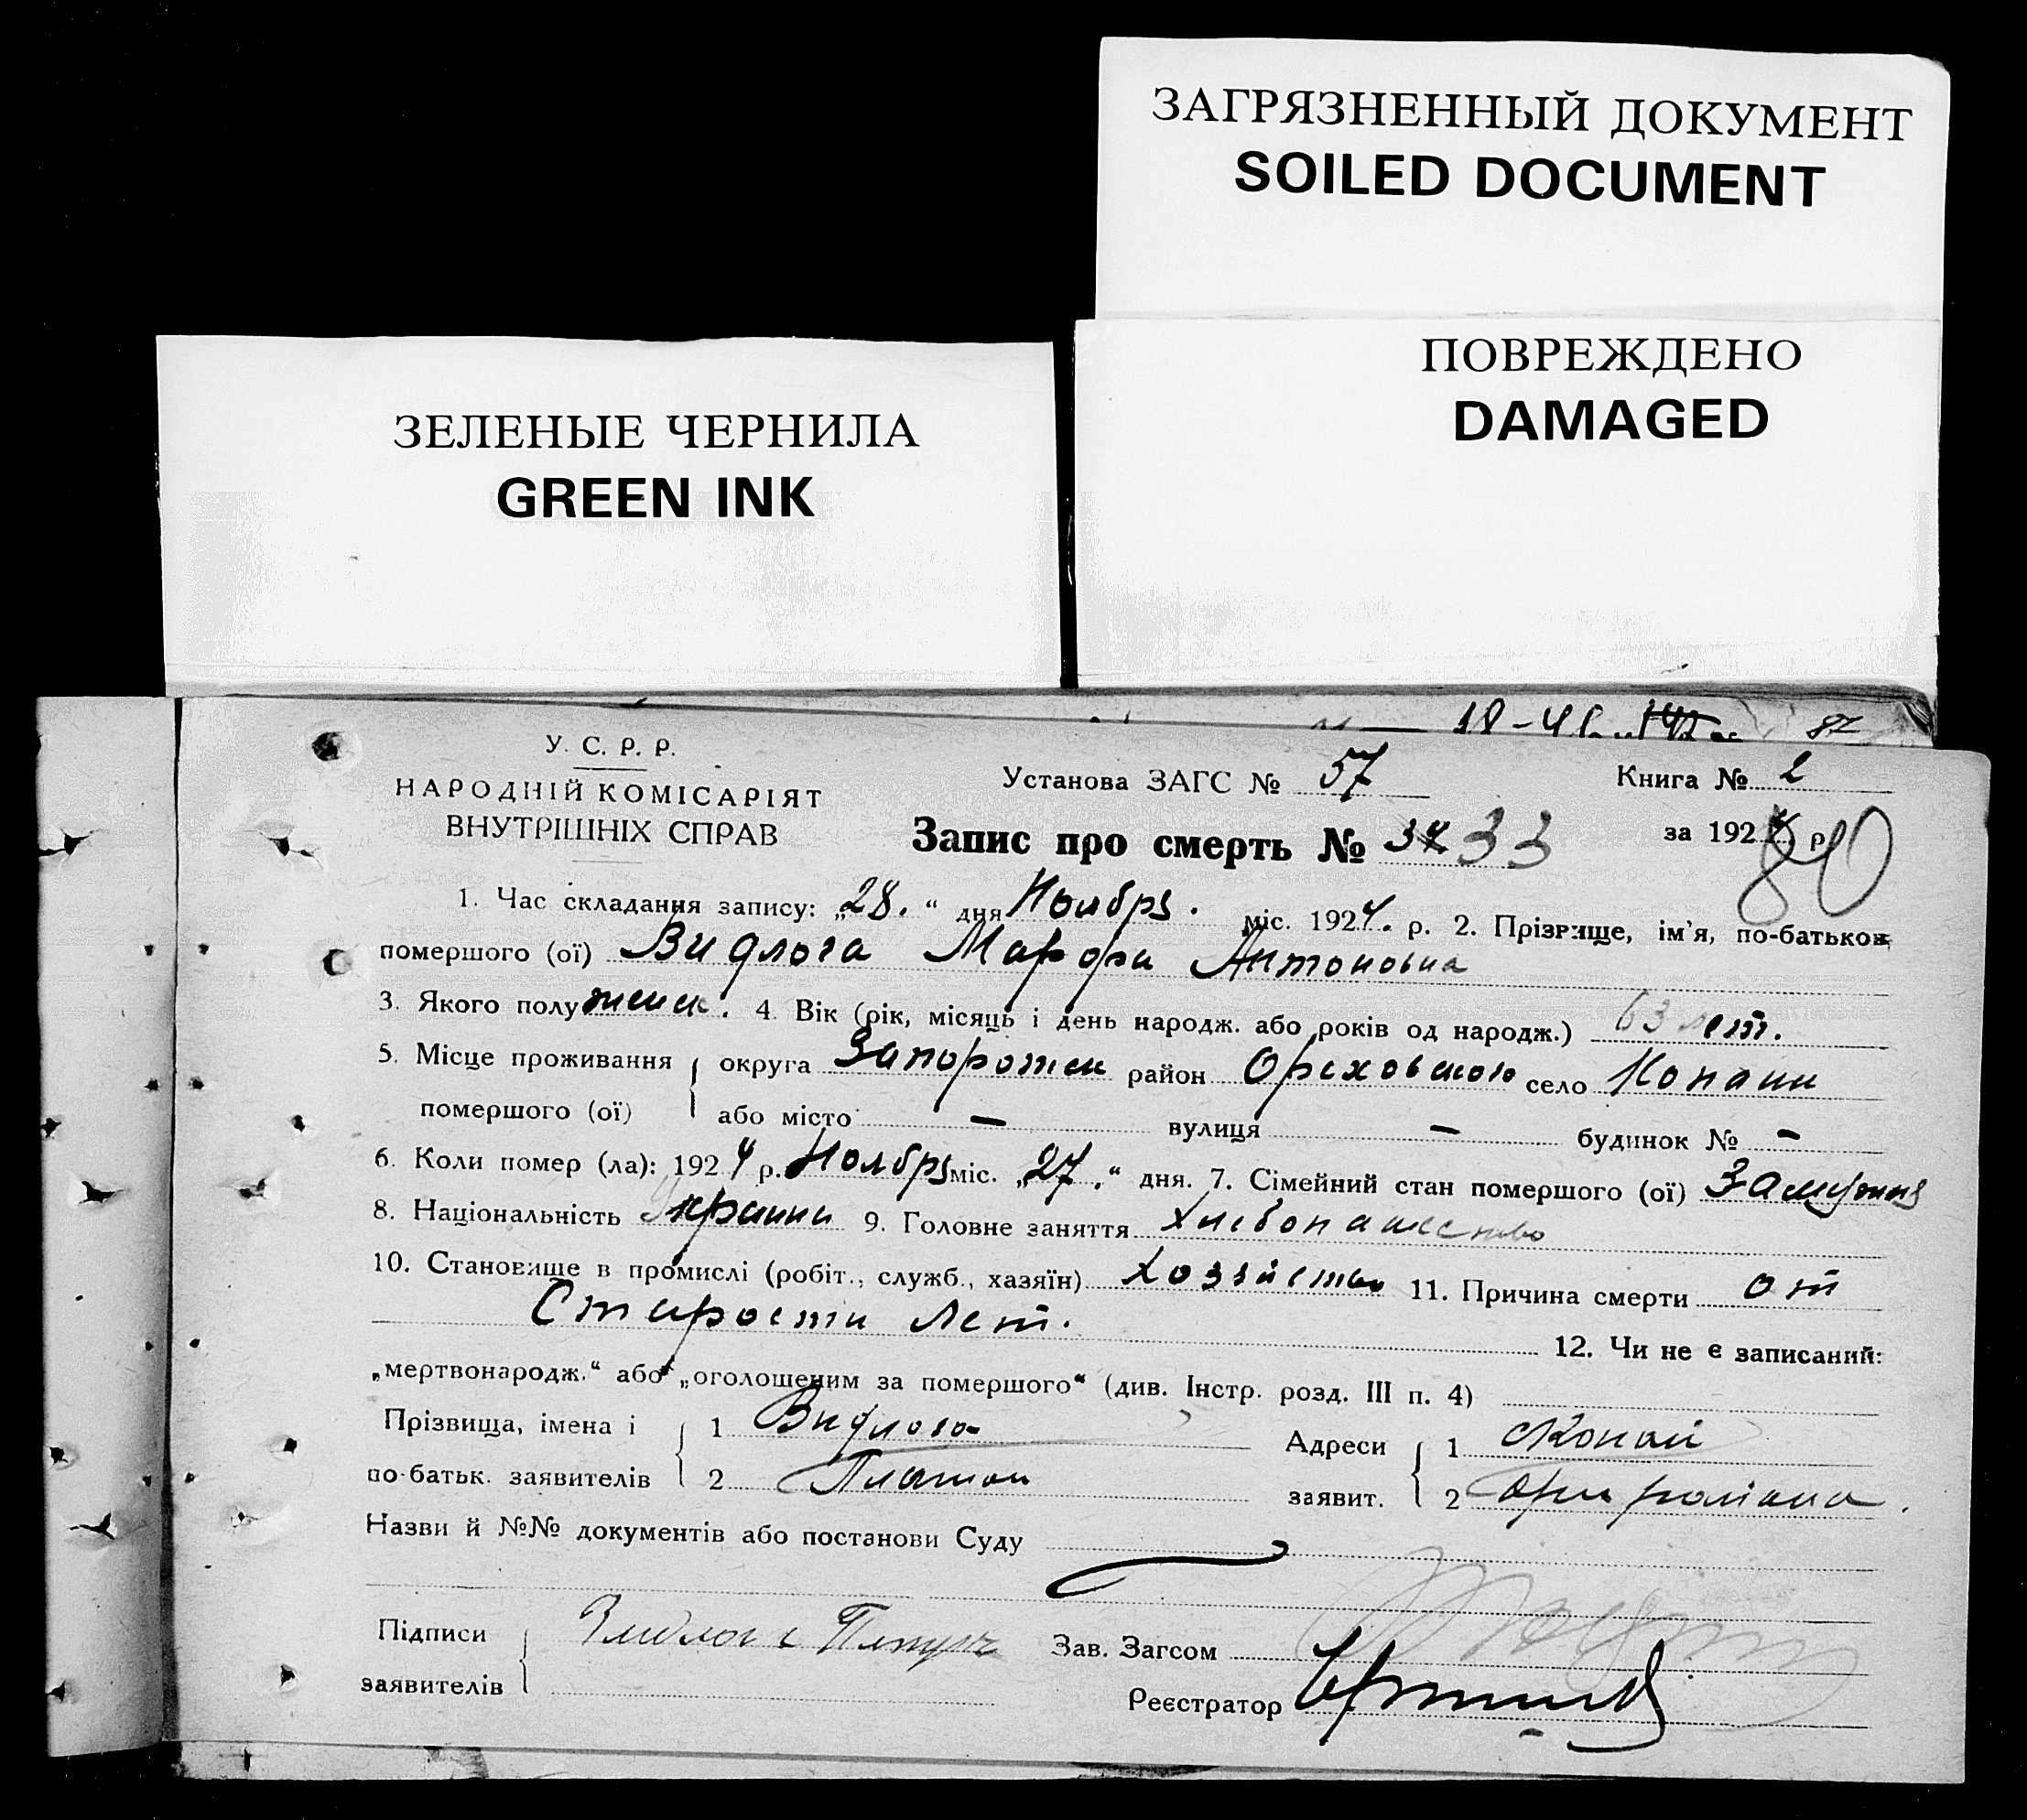 ЗАГРЯЗНЕННЫЙ ДОКУМЕНТ
SOILED DOCUMENT
ПОВРЕЖДЕНО
DAMAGED
ЗЕЛЕНЫЕ ЧЕРНИЛА
GREEN INK
18-
87
У. С. Р. Р.
НАРОДНІЙ КОМІСАРІЯТ
ВНУТРІШНІХ СПРАВ
Установа ЗАГС № 57 Книга № 2
Запис про смерть № 34 33 за 1924 р. 80
1. Час складання запису: „28.“ дня Ноября. міс. 1924. р. 2. Прізвище, ім'я, по-батькові
помершого (ої) Видлога Марфа Антоновна
3. Якого полу женск. 4. Вік (рік, місяць і день народж. або років од народж.) 63 лет.
5. Місце проживання округа Запорожск район Ореховского село Копани
помершого (ої) або місто — вулиця — будинок № -
6. Коли помер (ла): 1924 р. Ноября міс. „27.“ дня. 7. Сімейний стан помершого (ої) Замужня
8. Національність Украинка 9. Головне заняття Хлебопашество
10. Становище в промислі (робіт., служб., хазяїн) Хозяйство 11. Причина смерти от
Старости лет. 12. Чи не є записаний:
„мертвонародж.“ або „оголошеним за помершого“ (див. Інстр. розд. III п. 4)
Прізвища, імена і 1 Видлога Адреси 1 с Копани
по-батьк. заявителів 2 Платон заявит. 2 Орех района.
Назви й №№ документів або постанови Суду
Підписи Видлога Зав. Загсом
заявителів Реєстратор